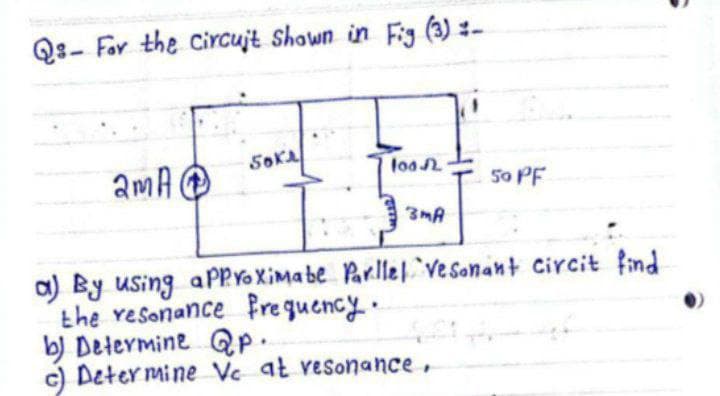 Q3- For the circujt shown in Fig (3) :-
2mA
50KΩ
100Ω
50 PF
3mA
a) By using apprroximate Parllel resonant circit find
the resonance frequency.
b) Determine Qp.
c) Determine Vc at resonance,